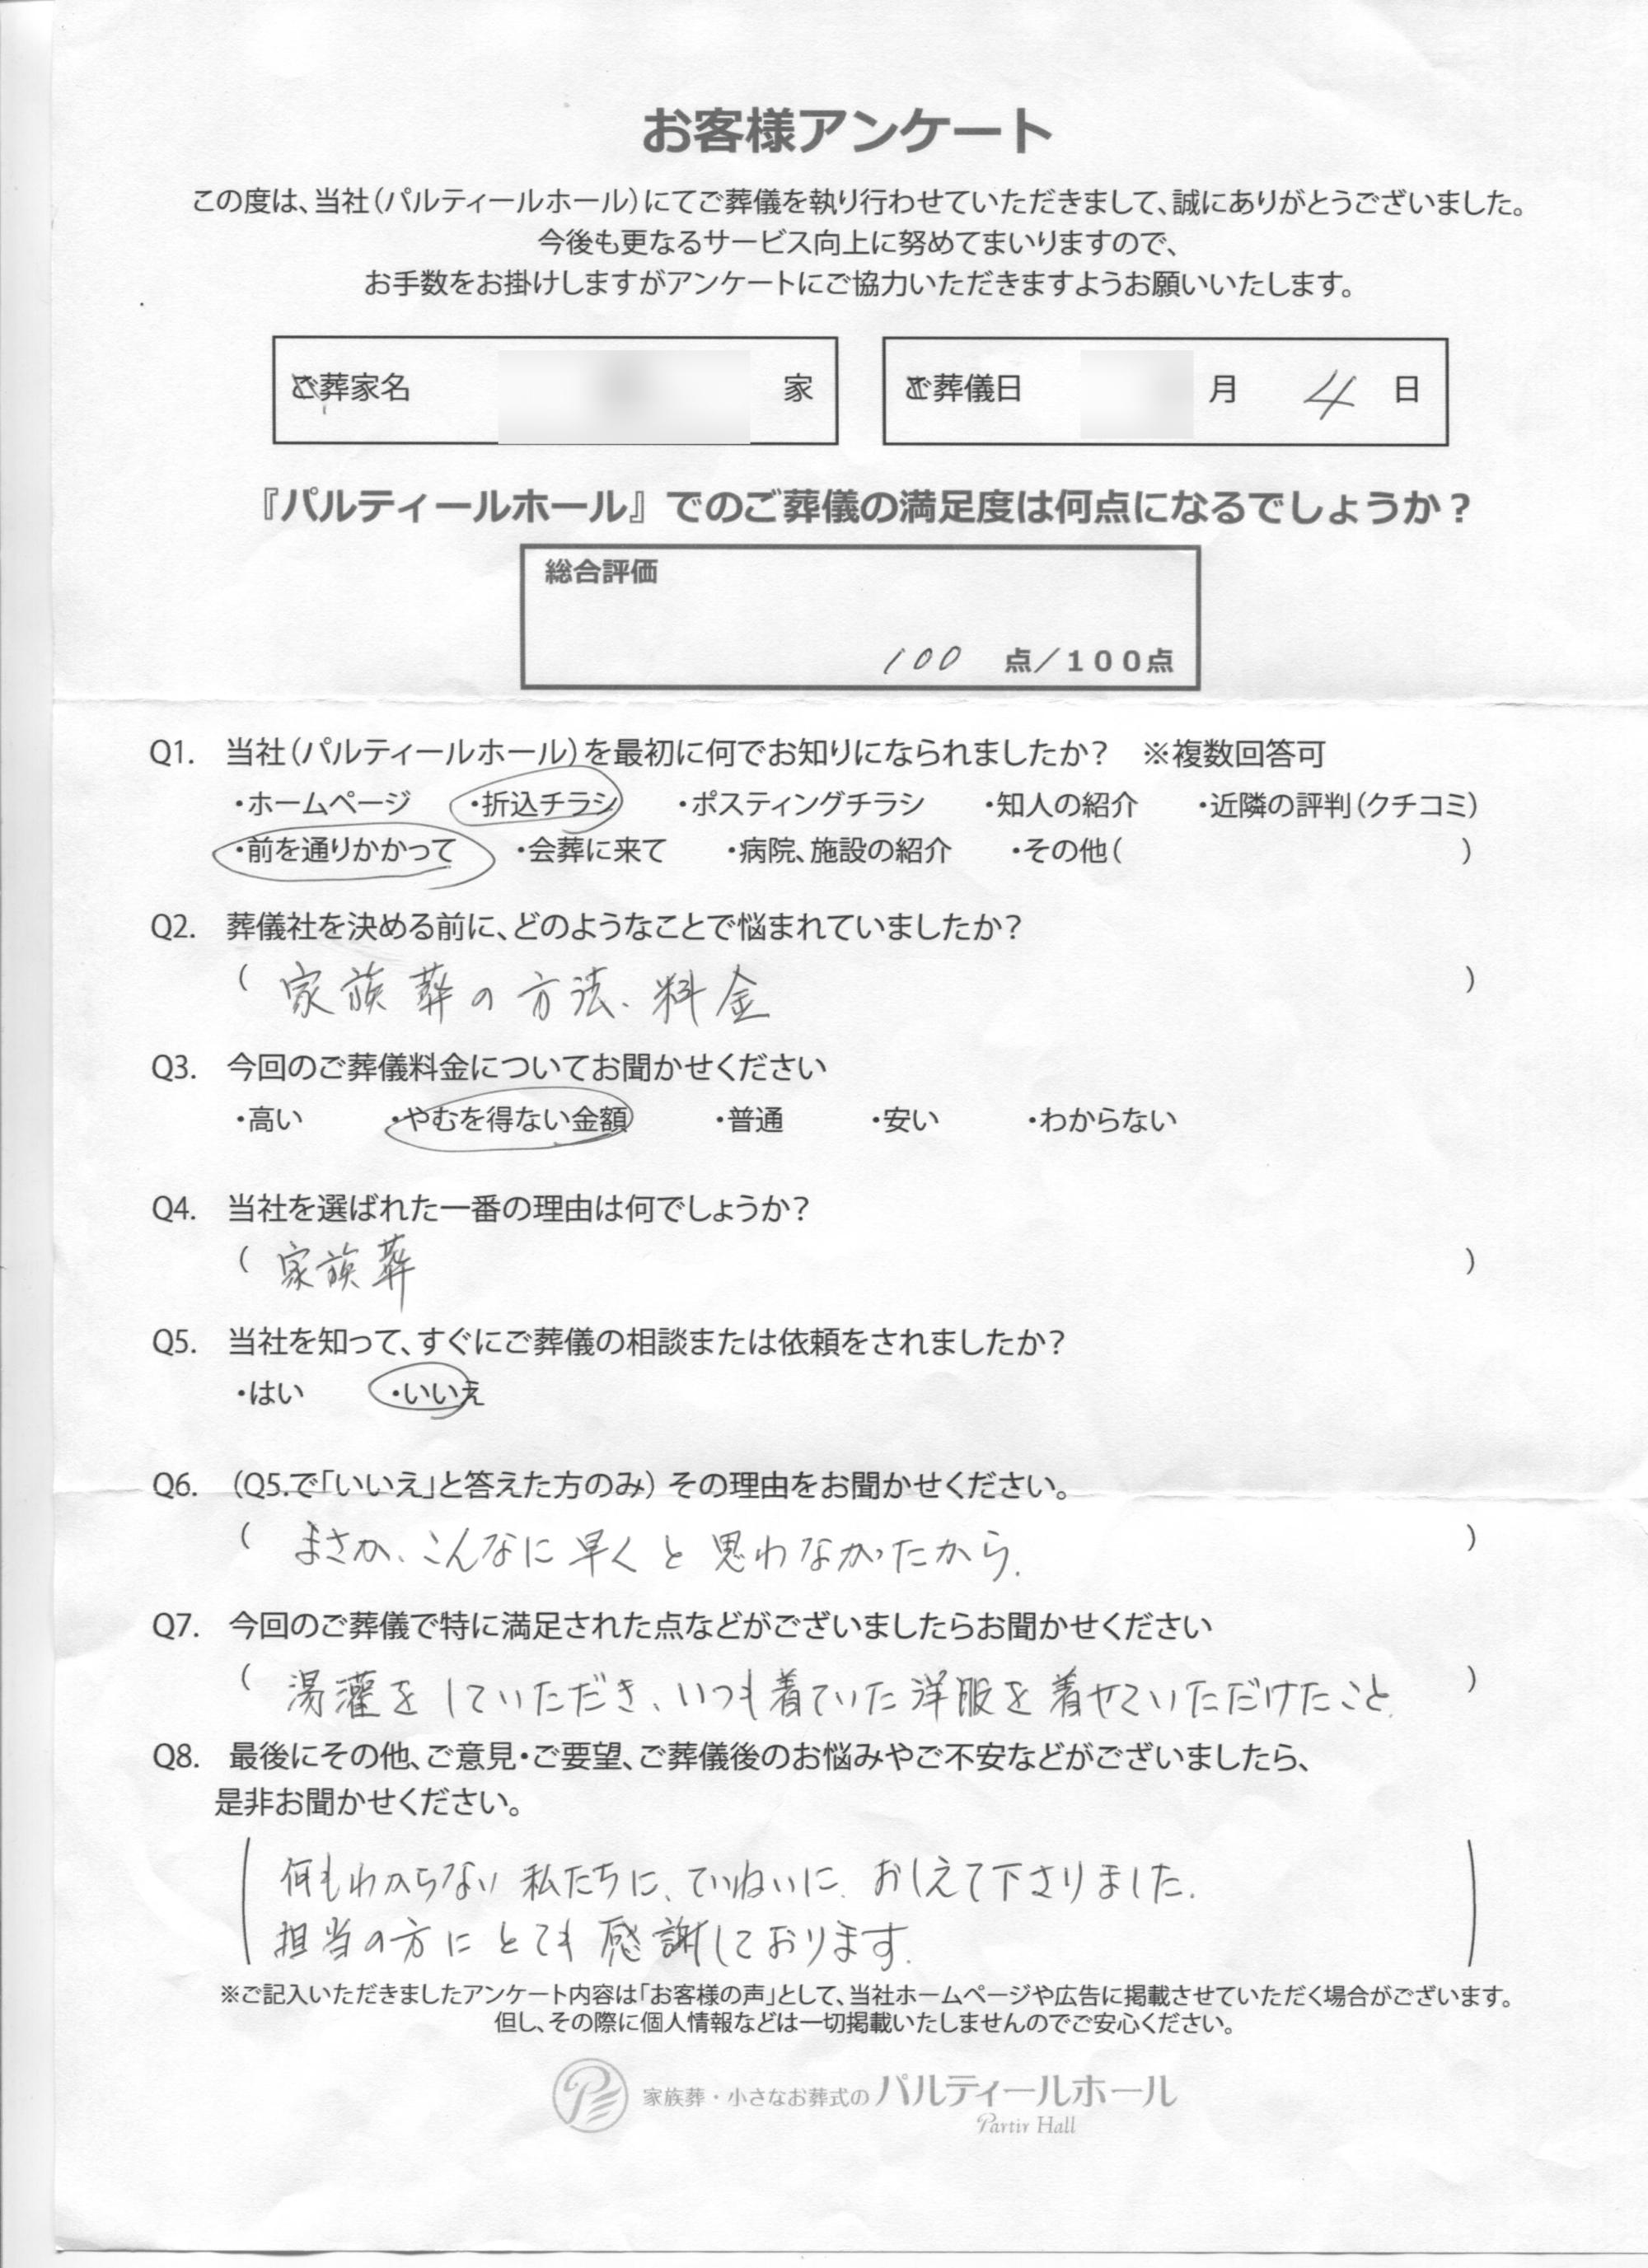 お客様アンケート
この度は、当社（パルティールホール）にてご葬儀を執り行わせていただきまして、誠にありがとうございました。
今後も更なるサービス向上に努めてまいりますので、
お手数をお掛けしますがアンケートにご協力いただきますようお願いいたします。
ご葬家名 家 ご葬儀日 月 4 日
『パルティールホール』でのご葬儀の満足度は何点になるでしょうか？
総合評価
100 点／100点
Q1. 当社（パルティールホール）を最初に何でお知りになられましたか？ ※複数回答可
・ホームページ ・折込チラシ ・ポスティングチラシ ・知人の紹介 ・近隣の評判（クチコミ）
・前を通りかかって ・会葬に来て ・病院、施設の紹介 ・その他（ ）
Q2. 葬儀社を決める前に、どのようなことで悩まれていましたか？
（ 家族葬の方法、料金 ）
Q3. 今回のご葬儀料金についてお聞かせください
・高い ・やむを得ない金額 ・普通 ・安い ・わからない
Q4. 当社を選ばれた一番の理由は何でしょうか？
（ 家族葬 ）
Q5. 当社を知って、すぐにご葬儀の相談または依頼をされましたか？
・はい ・いいえ
Q6. （Q5.で「いいえ」と答えた方のみ）その理由をお聞かせください。
（ まさか、こんなに早くと思わなかったから. ）
Q7. 今回のご葬儀で特に満足された点などがございましたらお聞かせください
（ 湯灌をしていただき、いつも着ていた洋服を着せていただけたこと. ）
Q8. 最後にその他、ご意見・ご要望、ご葬儀後のお悩みやご不安などがございましたら、
是非お聞かせください。
何もわからない私たちに、ていねいに、おしえて下さりました.
担当の方にとても感謝しております.
※ご記入いただきましたアンケート内容は「お客様の声」として、当社ホームページや広告に掲載させていただく場合がございます。
但し、その際に個人情報などは一切掲載いたしませんのでご安心ください。
家族葬・小さなお葬式の パルティールホール
Partir Hall